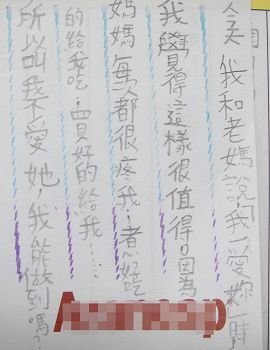 今天我和老媽說我「愛妳」時
我覺得這樣很值得。因為
媽媽每都很疼我!煮好吃
的給我吃.買好的給我……
所以叫我不愛她我能做到嗎?